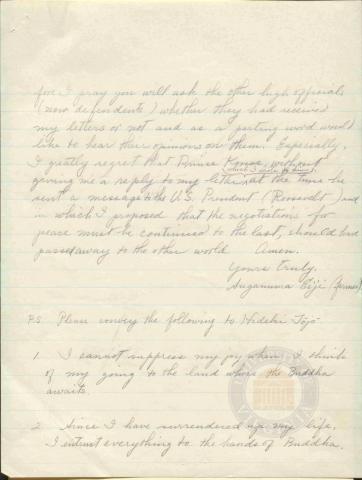 fore I pray you will ask the other high officials
(now defendents) whether they had received
my letters or not and as a parting word would
like to hear their opinions on them. Especially,
I gratly regret that Prince Konoe, without
giving me a reply to my letter (which I wrote to him) at the time he
sent a message to the U.S. President (Roosevelt) and
in which I proposed that the negotiations for
peace must be continued to the last, should had
passed away to the other world. Amen.
Yours truly.
Suganuma Eiji (farmer)
P.S. Please convey the following to Hideki Tōjō
1. I cannot suppress my joy when I think
of my going to the land where the Buddha
awaits.
2. Since I have surrendered up my life,
I entrust everything to the hands of Buddha.